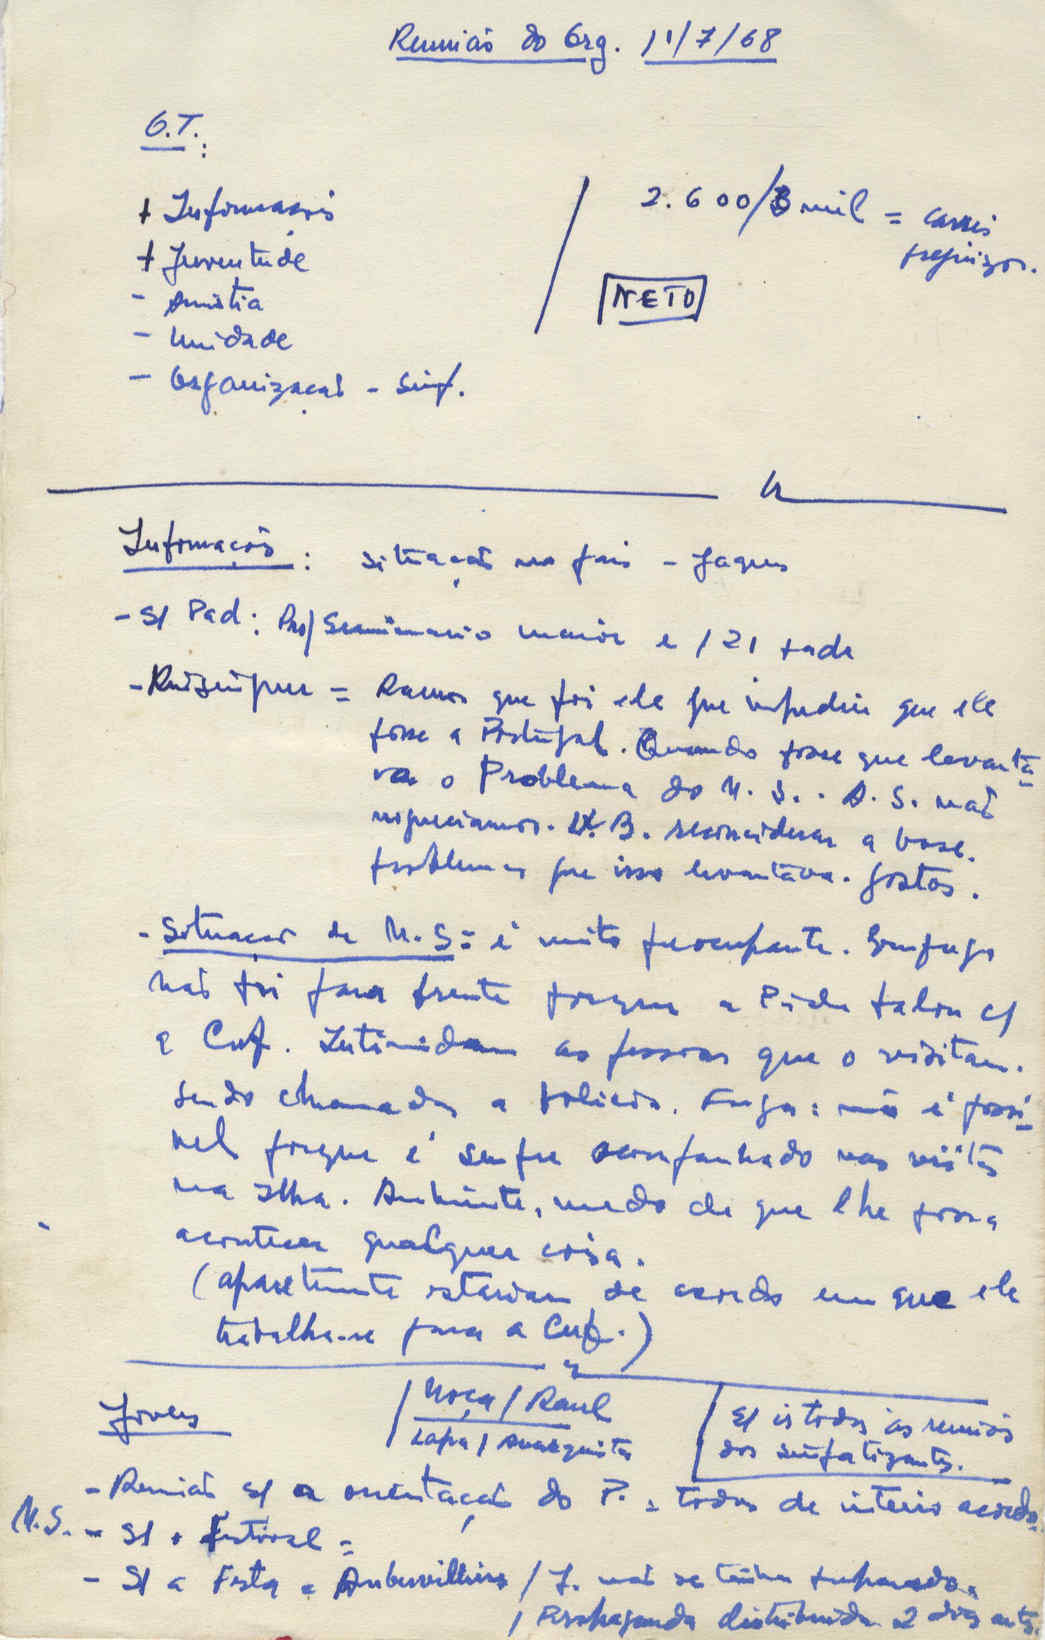 Reunião do Org. 11/7/68
O.T.:
+ Informação
+ Juventude
- Amnistia
- Unidade
- Organização - Simp.
2.600/3 mil = carris
prejuizos.
NETO
Informação: situação no país - Jaques
- S/ Pad: Seminario maior e 121 rade
- = Ramos que foi ele que impediu que ele
fosse a Portugal. Quando fosse que levanta-
va o Problema do M. S. . A. S. não
B. reconsiderar a base.
problemas que isso levantava. Gostos.
- Situação de M. S = é muito preocupante. Emprego
não foi para frente porque a Pide falou c/
a Cuf. Intimidam as pessoas que o visitam.
sendo chamadas a policia. Fuga: não é possi-
vel porque é sempre acompanhado nas visitas
na Ilha. Ambiente, medo de que lhe possa
acontecer qualquer coisa.
(aparetemente estariam de acordo em que ele
trabalhasse para a Cuf.)
Jovens
Moça / Raul
Lapa / Anarquista
S/ is todos as reuniões
dos simpatizantes.
- Reunião s/ a orientação do P. = todos de inteiro acordo.
M.S. - S/ o Festival =
- S/ a Festa a Aubervilliers / J. não se tinha preparado.
/ Propaganda distribuida 2 dias antes.